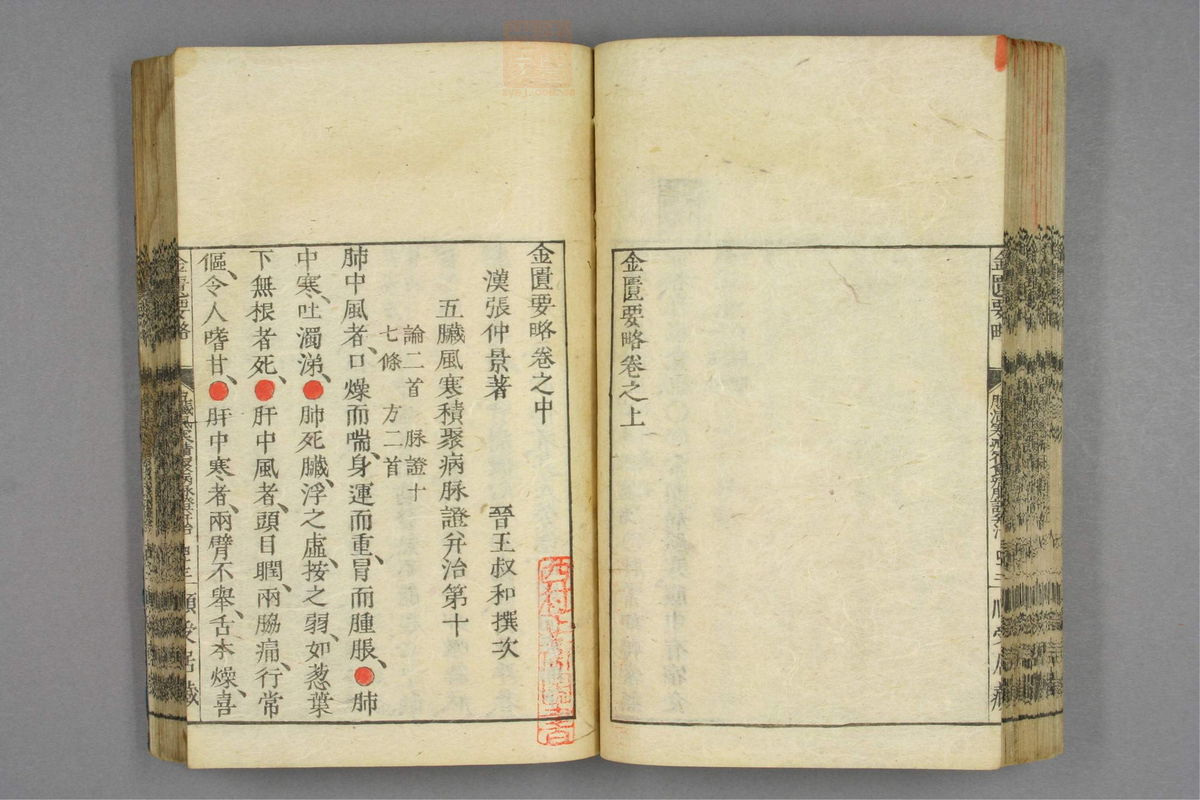 金匱要略卷之上
金匱要略卷之中
漢張仲景著　晉王叔和撰次
五臟風寒積聚病脉證并治第十
論二首　脉證十
七條　方二首
肺中風者、口燥而喘、身運而重、冒而腫脹、●肺
中寒、吐濁涕、●肺死臟、浮之虛、按之弱、如葱葉
下無根者死、●肝中風者、頭目瞤、兩脇痛、行常
傴、令人嗜甘、●肝中寒者、兩臂不舉、舌本燥、喜
金匱要略